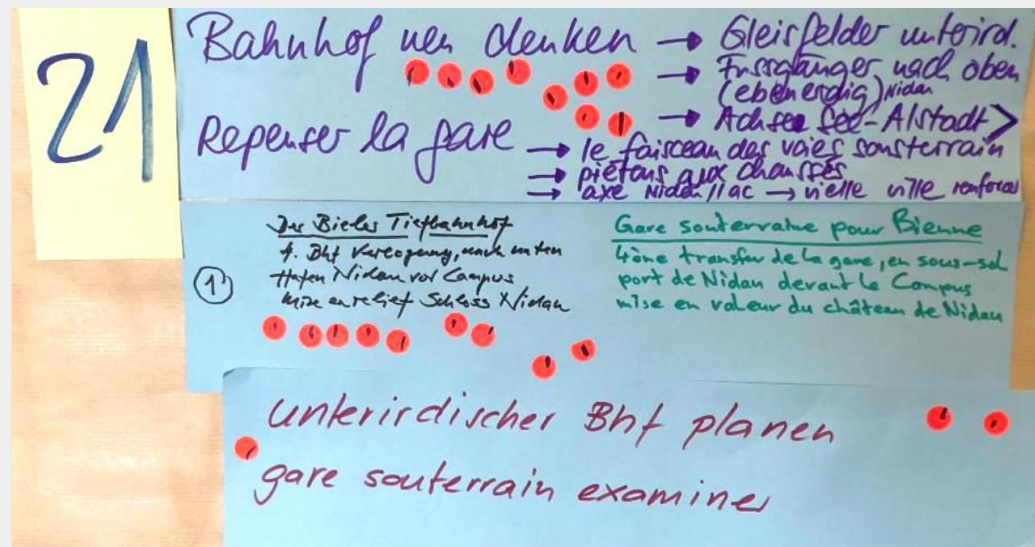 21
Bahnhof neu denken → Gleisfelder unterird.
→ Fussgänger nach oben
(ebenerdig) Nidau
→ Achse See-Alstadt >
Repenser la gare → le faisceau des voies sousterrain
→ piétons aux chaussés
→ axe Nidau/lac → vielle ville renforcer
①
Der Bieler Tiefbahnhof
4. Bhf Verlegung, nach unten
Hafen Nidau vor Campus
Mise en relief Schloss Nidau
Gare souterraine pour Bienne
4ème transfer de la gare, en sous-sol
port de Nidau devant le Campus
mise en valeur du château de Nidau
unterirdischer Bhf planen
gare souterrain examiner